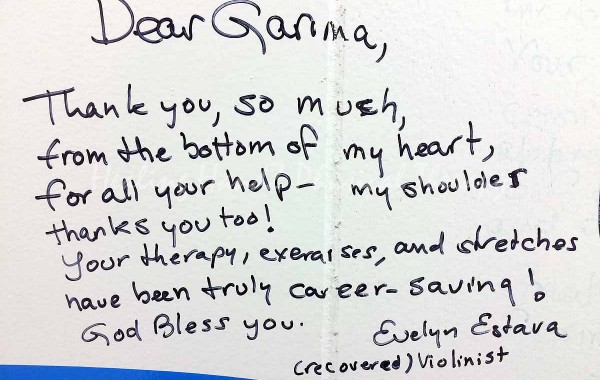 Dear Garima,
Thank you, so much,
from the bottom of my heart,
for all your help- my shoulder
thanks you too!
Your therapy, exercises, and stretches
have been truly career-saving!
God Bless you.
Evelyn Estava
(recovered) Violinist